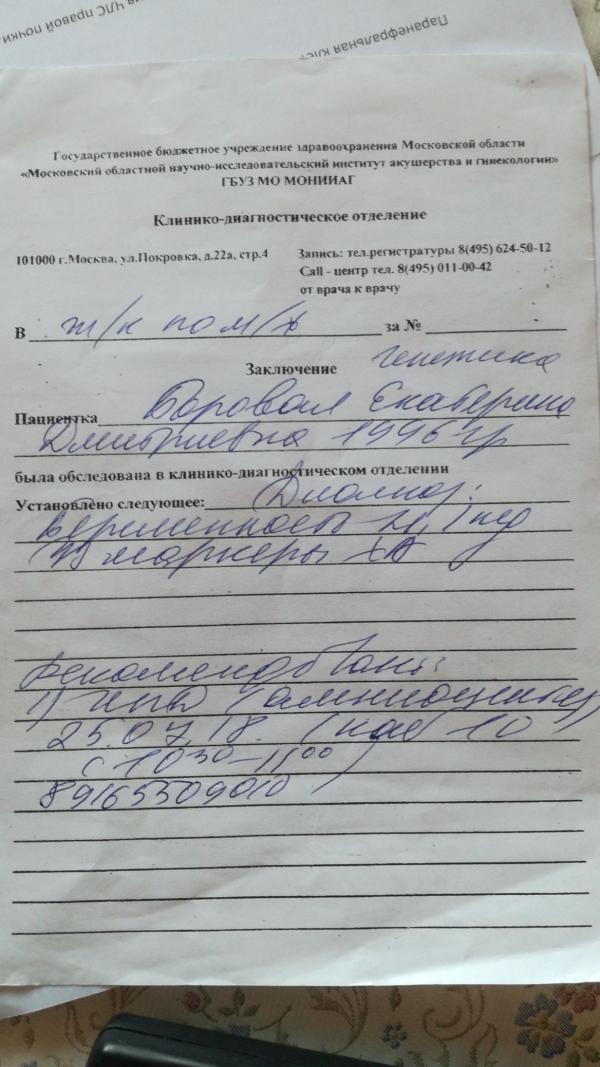 ия ЧЛС правой почки.
Паранефральная клет
Государственное бюджетное учреждение здравоохранения Московской области
«Московский областной научно-исследовательский институт акушерства и гинекологии»
ГБУЗ МО МОНИИАГ
Клинико-диагностическое отделение
101000 г.Москва, ул.Покровка, д.22а, стр.4
Запись: тел.регистратуры 8(495) 624-50-12
Call - центр тел. 8(495) 011-00-42
от врача к врачу
В ж/к по м/ж за №
Заключение генетика
Пациентка Боровая Екатерина
Дмитриевна 1996 гр
была обследована в клинико-диагностическом отделении
Установлено следующее: Диагноз:
Беременность нед
маркеры ХА
Рекомендовано:
1) ИПД (амниоцентез)
25.07.18. (каб 10
с 10 30 - 11 00 )
89165509010